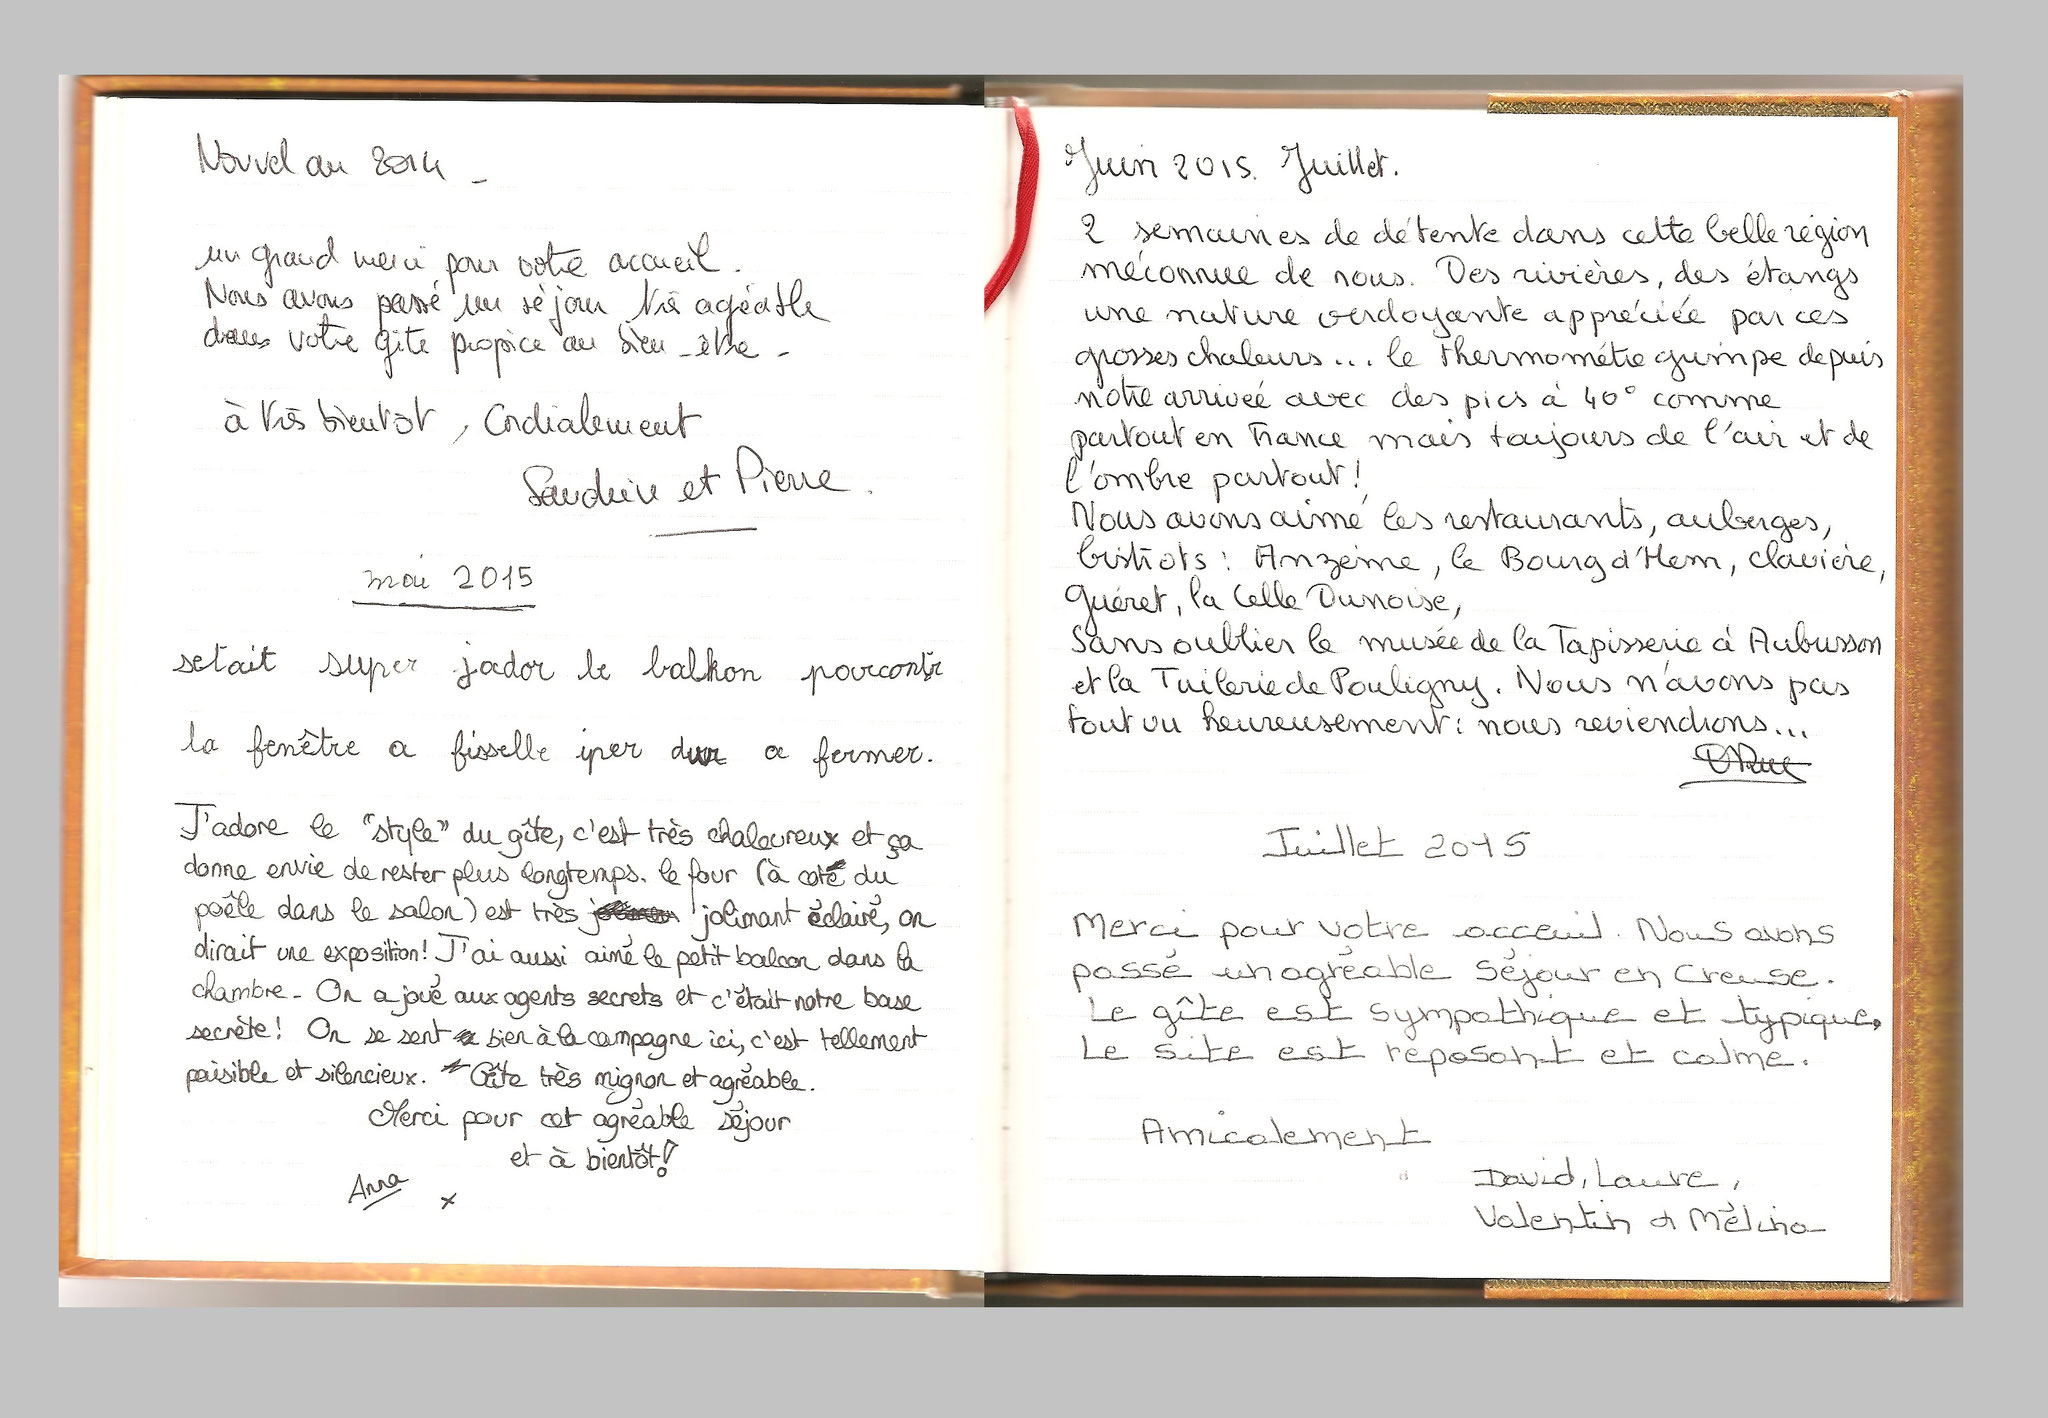 Nouvel an 2014 -
un grand merci pour votre accueil.
Nous avons passé un séjour très agréable
dans votre gîte propice au bien-être -
à très bientôt, Cordialement
Sandrine et Pierre.
mai 2015
setait super jador le balkon pourcontr
la fenêtre a fisselle iper dur a fermer.
J'adore le "style" du gîte, c'est très chaleureux et ça
donne envie de rester plus longtemps. le four (à coté du
poêle dans le salon) est très joliment éclairé, on
dirait une exposition! J'ai aussi aimé le petit balcon dans la
chambre - On a joué aux agents secrets et c'était notre base
secrète! On se sent bien à la campagne ici, c'est tellement
paisible et silencieux. Gîte très mignon et agréable.
Merci pour cet agréable séjour
et à bientôt!
Anna x
Juin 2015. Juillet.
2 semaines de détente dans cette belle région
méconnue de nous. Des rivières, des étangs
une nature verdoyante appréciée par ces
grosses chaleurs... le thermomètre grimpe depuis
notre arrivée avec des pics à 40° comme
partout en France mais toujours de l'air et de
l'ombre partout!
Nous avons aimé les restaurants, auberges,
bistrots : Anzème, le Bourg d'Hem, clavière,
Guéret, la Celle Dunoise,
Sans oublier le musée de la Tapisserie à Aubusson
et la Tuilerie de Pouligny. Nous n'avons pas
tout vu heureusement : nous reviendrons...
Juillet 2015
Merci pour votre acceuil. Nous avons
passé un agréable séjour en Creuse.
Le gîte est sympathique et typique.
Le site est reposant et calme.
Amicalement
David, Laure,
Valentin et Mélina